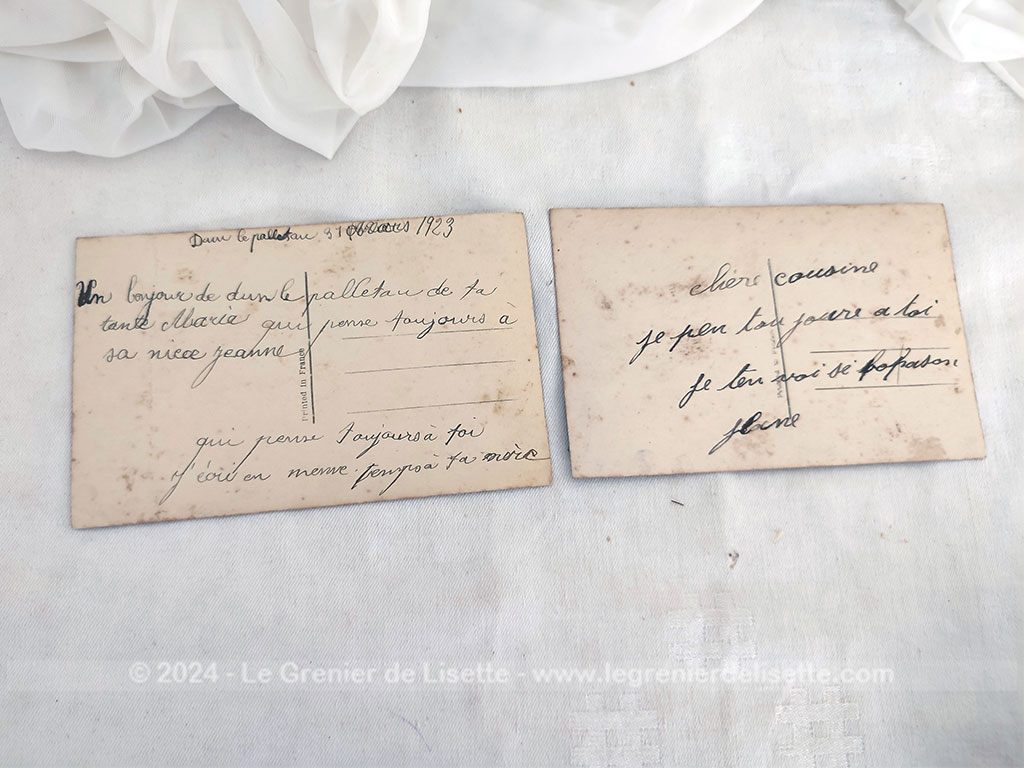 Dun le palletau 31 Mars 1923
Un bonjour de dun le palletau de ta
tante Maria qui pense toujours à
sa niece jeanne
qui pense toujours à toi
j'écri en meme temps à ta mère
Printed in France
chère cousine
je pen tou joure a toi
je ten voi se
jeane
© 2024 - Le Grenier de Lisette - www.legrenierdelisette.com